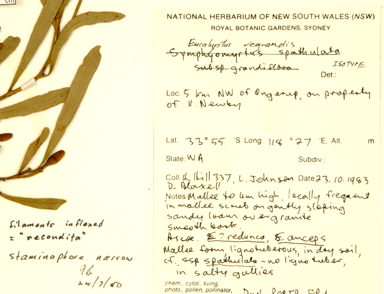 NATIONAL HERBARIUM OF NEW SOUTH WALES (NSW)
ROYAL BOTANIC GARDENS, SYDNEY
Eucalyptus
Symphyomyrtus spathulata
ISOTYPE
subsp grandiflora
Det:
Loc: 5 km NW of Ongerup, on property
of Newbey
Lat. 33° 55 'S Long. 118° 27 'E. Alt. m
State: WA Subdiv:
Coll K. Hill 337, L. Johnson Date 23.10.1983
D. Blaxell
Notes Mallee to 4m high, locally frequent
in mallee scrub on gently sloping
sandy loam over granite
smooth bark.
Assoc. E. redunca, E. anceps
Mallee form lignotuberous, in dry soil,
cf. ssp spathulata - no lignotuber,
in salty gullies
chem., cytol., living,
photo., pollen, pollinator,
filaments inflexed
= "recondita"
staminophore narrow